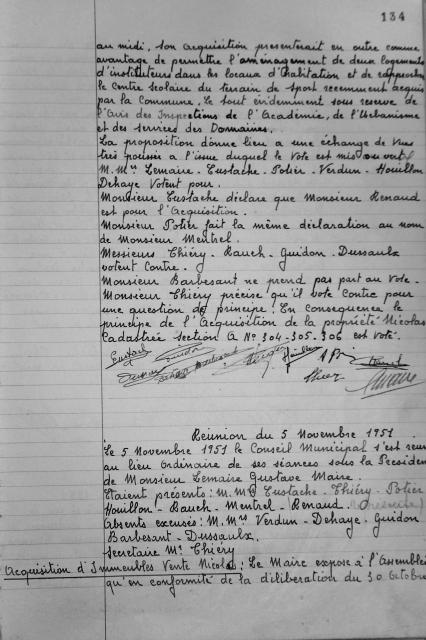 134
au midi, son acquisition presenterait en outre comme
avantage de permettre l'aménagement de deux logements
d'instituteurs dans les locaux d'habitation et de rapprocher
le Centre Scolaire du terrain de sport recemment acquis
par la Commune, le tout évidemment sous reserve de
l'avis des Inspections de l'Académie, de l'Urbanisme
et des services des Domaines.
La proposition donne lieu a une échange de vues
très poussée a l'issue duquel le vote est mis au vert
M.Mrs Lemaire - Eustache - Potier - Verdun - Houillon
Dehaye votent pour.
Monsieur Eustache déclare que Monsieur Renaud
est pour l'acquisition.
Monsieur Potier fait la même déclaration au nom
de Monsieur Mentrel.
Messieurs Thiéry - Rauch - Guidon - Dussaulx
votent contre.
Monsieur Barbesant ne prend pas part au vote.
Monsieur Thiéry précise qu'il vote contre pour
une question de principe. En consequence le
principe de l'acquisition de la propriété Nicolas
Cadastrée section A No 304-305-306 est voté.
Réunion du 5 Novembre 1951
Le 5 Novembre 1951 le Conseil Municipal s'est reuni
au lieu ordinaire de ses séances sous la Présidence
de Monsieur Lemaire Gustave Maire.
Etaient présents: M.Mrs Eustache - Thiéry - Potier
Houillon - Rauch - Mentrel - Renaud.
Absents excusés: M.Mrs Verdun - Dehaye - Guidon
Barbesant - Dussaulx.
Secretaire Mr Thiéry
Acquisition d'Immeubles Vente Nicolas: Le Maire expose à l'Assemblée
qu'en conformité de la délibération du 30 Octobre